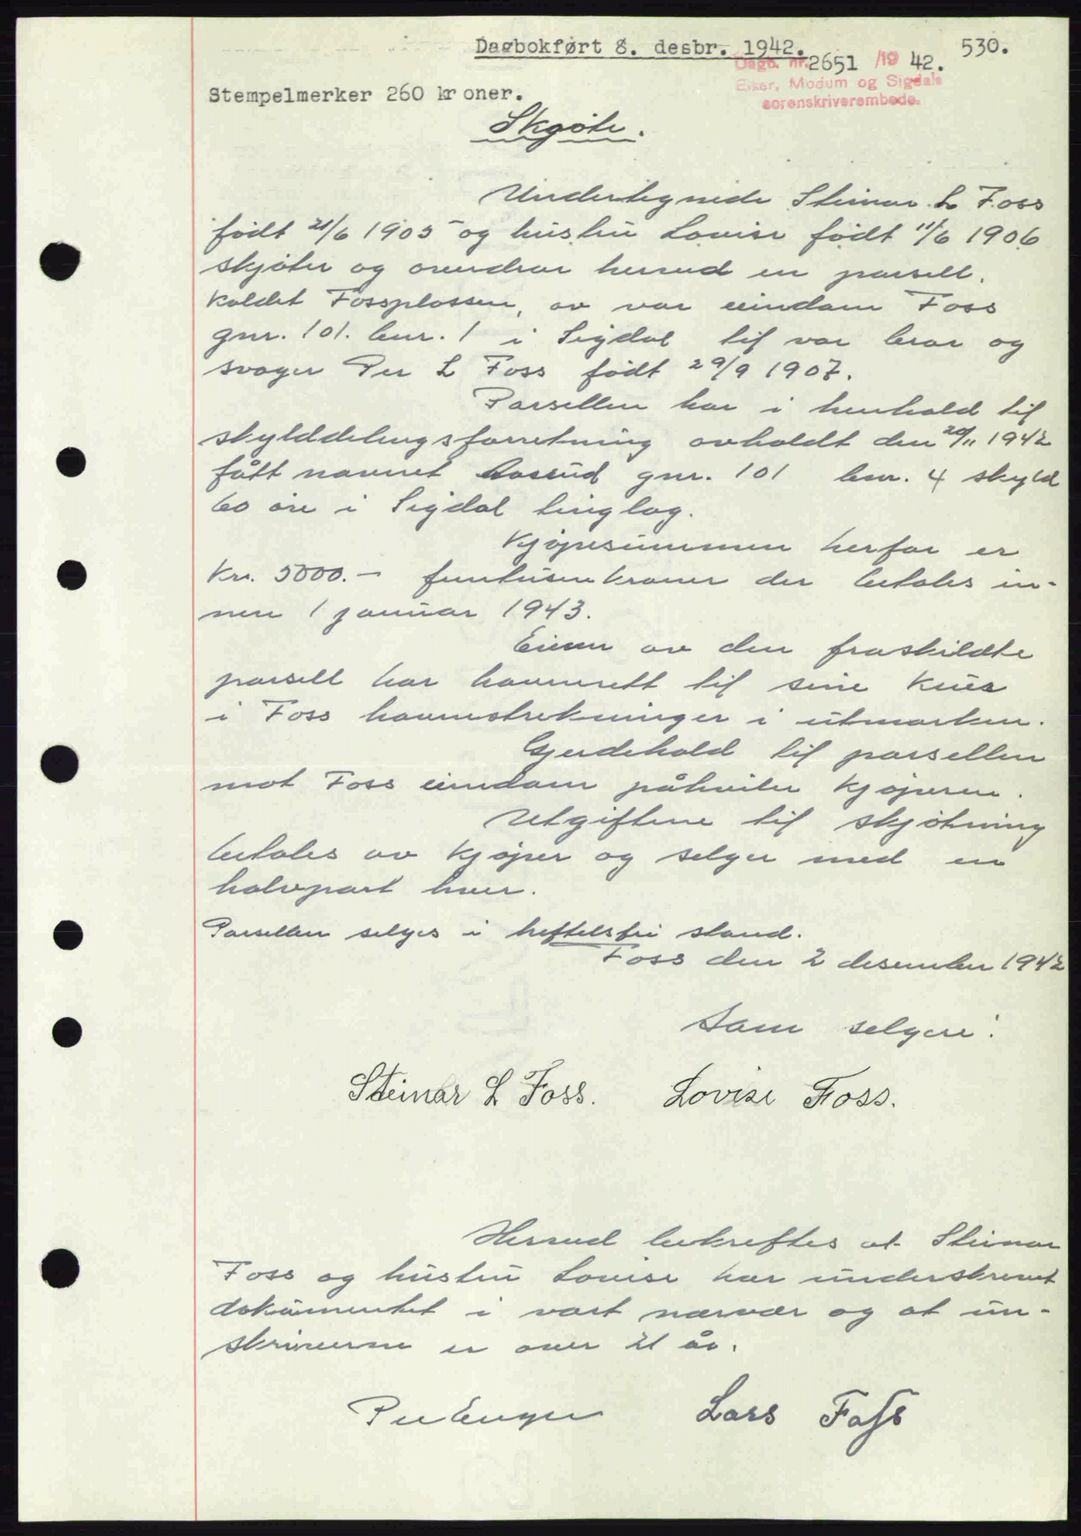 Dagbokført 8. desbr. 1942.
530.
Dagb. nr. 2651 /19 42.
Eiker, Modum og Sigdals
sorenskriverembede.
Stempelmerker 260 kroner.
Skjøte.
Undertegnede Steinar L Foss
født 21/6 1905 og hustru Lovise født 11/6 1906
skjøter og overdrar herved en parsell,
kaldet Fossplassen, av vår eiendom Foss
gnr. 101. bnr. 1 i Sigdal til vår bror og
svoger Per L Foss født 29/9 1907.
Parsellen har i henhold til
skylddelingsforretning avholdt den 20/11 1942
fått navnet gnr. 101 bnr. 4 skyld
60 øre i Sigdal tinglag.
Kjøpesummen herfor er
Kr. 5000.- femtusenkroner der betales in-
nen 1 januar 1943.
Eieren av den fraskildte
parsell har havnerett til sine kuer
i Foss havnestrekninger i utmarken.
Gjerdehold til parsellen
mot Foss eiendom påhviler kjøperen.
Utgiftene til skjøtning
betales av kjøper og selger med en
halvpart hver.
Parsellen selges i heftelsfri stand.
Foss den 2 desember 1942
Som selgere:
Steinar L Foss. Lovise Foss.
Herved bekreftes at Steinar
Foss og hustru Lovise har underskrevet
dokumentet i vårt nærvær og at un-
skriverne er over 21 år.
Per Enger Lars Foss